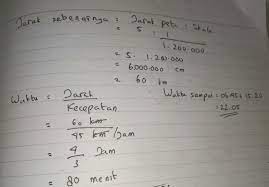 Jarak sebenarnya = Jarak peta : Skala
= 5 : 1/1.200.000
= 5 . 1.200.000
= 6.000.000 cm
= 60 km
Waktu = Jarak/Kecepatan
= 60 km/45 km/Jam
= 4/3 Jam
= 80 menit
Waktu sampai = 06.45 + 15.20
= 22.05